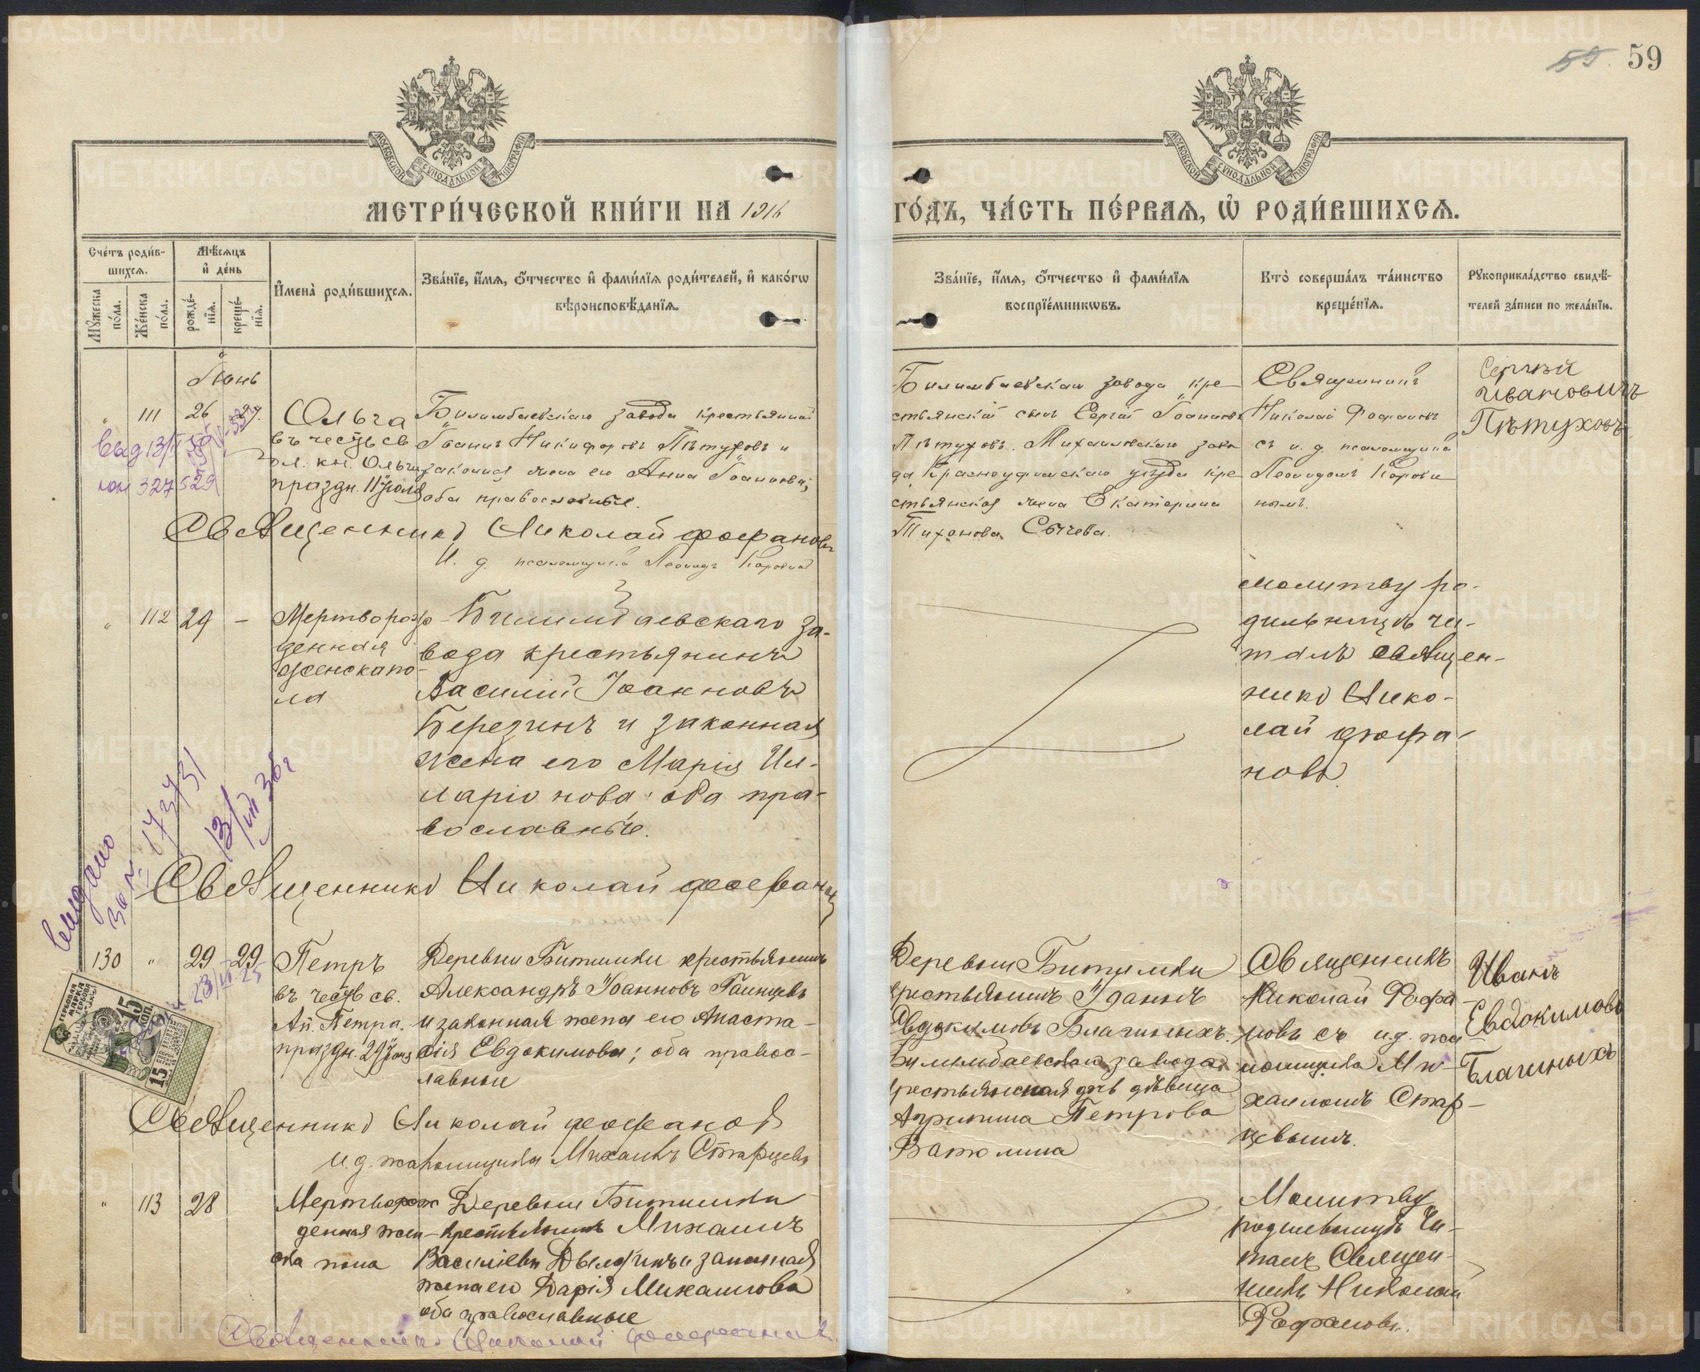 59
МЕТРИ́ЧЕСКОЙ КНИ́ГИ НА 1916
ГО́ДЪ, ЧА́СТЬ ПЕ́РВАѦ, Ѽ РОДИ́ВШИХСѦ.
Сче́тъ роди́в-
шихсѧ.
Мѣ́сѧцъ
и҆ де́нь
Мꙋ́жеска по́ла.
Же́нска по́ла.
рожде́-нїѧ.
креще́-нїѧ.
И҆мена̀ роди́вшихсѧ.
Зва́нїе, и҆́мѧ, ѻ҆́тчество и҆ фами́лїѧ роди́телей, и҆ како́гѡ
вѣроисповѣ́данїѧ.
Зва́нїе, и҆́мѧ, ѻ҆́тчество и҆ фами́лїѧ
воспрїе́мникѡвъ.
Кто̀ соверша́лъ та́инство
креще́нїѧ.
Рꙋкоприкла́дство свидѣ́-
телей за́писи по жела́нїю.
Іюнь
" 111 26
Ольга
въ честь св.
кн. Ольги
праздн. 11 Іюля
Билимбаевскаго завода крестьянинъ
Іоаннъ Никифоровъ Пѣтуховъ и
законная жена его Анна Іоаннова,
оба православные.
Билимбаевскаго завода кре-
стьянскій сынъ Сергій Іоанновъ
Пѣтуховъ. Михайловскаго заво
да Красноуфимскаго уѣзда кре-
стьянская жена Екатерина
Тихонова Сычева.
Священникъ
Николай Фофановъ
съ и. д. псаломщика
Леонидомъ Корови
нымъ.
Сергѣй
Ивановичъ
Пѣтуховъ
Священникъ Николай Фофановъ
И. д. псаломщика Леонидъ Коровинъ
" 112 29 —
Мертворож
денная
женскаго по-
ла
Билимбаевскаго за-
вода крестьянинъ
Василій Іоанновъ
Березинъ и законная
жена его Марія Ил-
ларіонова оба пра-
вославные.
Молитву ро-
дильницѣ чи-
талъ Священ-
никъ Нико-
лай Фофа-
новъ
Священникъ Николай Фофановъ
выдано
130 " 29 29
Петръ
въ честь св.
Ап. Петра.
праздн. 29 Іюня
Деревни Битимки крестьянинъ
Александръ Іоанновъ Галицевъ
и законная жена его Анаста-
сія Евдокимова; оба правос-
лавные
Деревни Битимки
крестьянинъ Іоаннъ
Евдокимовъ Благиныхъ.
Билимбаевскаго завода
крестьянская дочь дѣвица
Агрипина Петрова
Ватолина
Священникъ
Николай Фофа-
новъ съ и.д. пса
ломщика Ми-
хаиломъ Стар-
цевымъ.
Иванъ
Евдокимовъ
Благиныхъ
15 КОП.
Священникъ Николай Фофановъ
И.д. псаломщика Михаилъ Старцевъ
" 113 28
Мертворож
денная жен-
ска пола
Деревни Битимки
крестьянинъ Михаилъ
законная
жена его Дарія Михаилова
оба православные
Молитву
родильницѣ чи-
талъ Священ-
никъ Николай
Фофановъ.
Священникъ Николай Фофановъ
METRIKI.GASO-URAL.RU